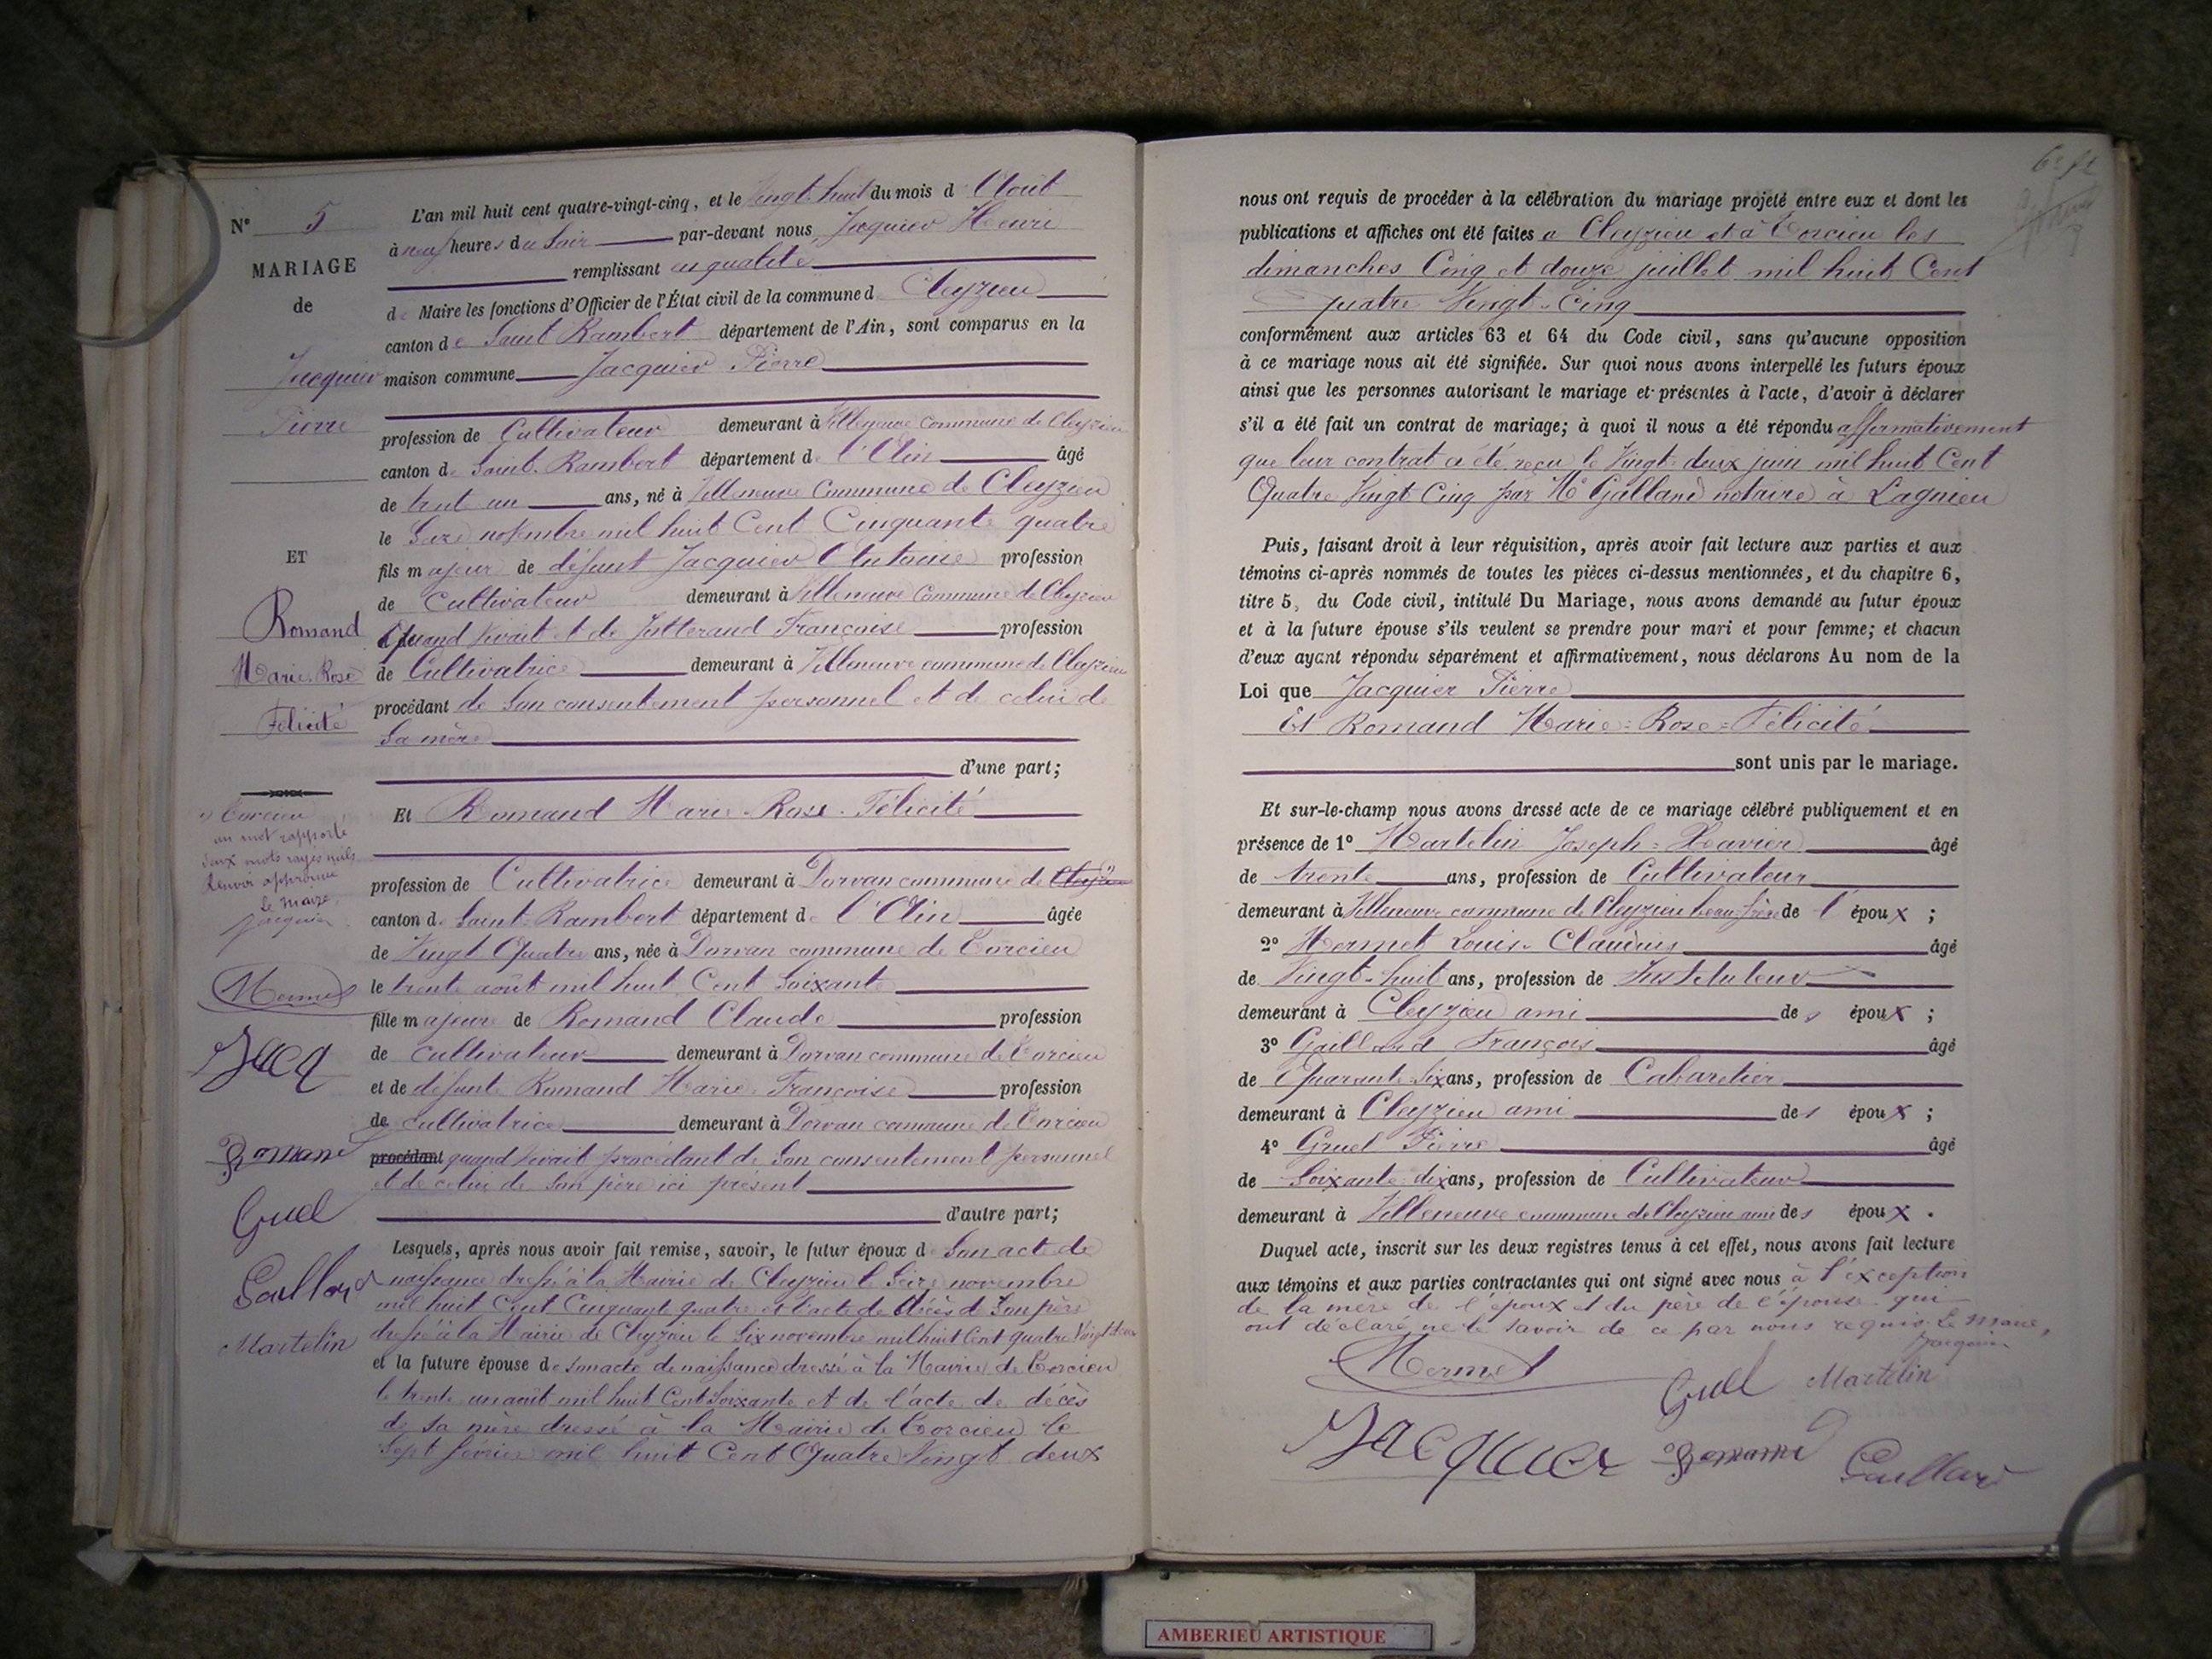 N° 5
MARIAGE
de
Jacquier
Pierre
ET
Romand
Marie Rose
Félicité
1) Torcieu
un mot rapporté
deux mots rayés nuls
Renvoi approuvé
le Maire,
Jacquier
Mermet
Jacq
Romand
Gruel
Gaillard
Martelin
L'an mil huit cent quatre-vingt-cinq, et le Vingt-huit du mois d'Août
à neuf heures du Soir par-devant nous Jacquier Henri
remplissant en qualité
de Maire les fonctions d'Officier de l'État civil de la commune d Cleyzieu
canton de Saint Rambert département de l'Ain, sont comparus en la
maison commune Jacquier Pierre
profession de Cultivateur demeurant à Villeneuve commune de Cleyzieu
canton de Saint-Rambert département de l'Ain âgé
de trente un ans, né à Villeneuve Commune de Cleyzieu
le Seize novembre mil huit Cent Cinquante quatre
fils majeur de défunt Jacquier Antoine profession
de Cultivateur demeurant à Villeneuve Commune de Cleyzieu
Quand Vivait et de Jutterand Françoise profession
de Cultivatrice demeurant à Villeneuve commune de Cleyzieu
procédant de Son consentement personnel et de celui de
Sa mère
d'une part;
Et Romand Marie-Rose-Félicité
profession de Cultivatrice demeurant à Dorvan commune de Cleyzieu
canton de Saint-Rambert département de l'Ain âgée
de Vingt Quatre ans, née à Dorvan commune de Torcieu
le trente août mil huit Cent Soixante
fille majeure de Romand Claude profession
de cultivateur demeurant à Dorvan commune de Torcieu
et de défunte Romand Marie-Françoise profession
de cultivatrice demeurant à Dorvan commune de Torcieu
procédant quand Vivait procédant de Son consentement personnel
et de celui de Son père ici présent
d'autre part;
Lesquels, après nous avoir fait remise, savoir, le futur époux de Son acte de
naissance dressé à la Mairie de Cleyzieu le Seize novembre
mil huit Cent Cinquante quatre et l'acte de décès de Son père
dressé à la Mairie de Cleyzieu le Six novembre mil huit Cent quatre Vingt deux
et la future épouse de son acte de naissance dressé à la Mairie de Torcieu
le trente un août mil huit Cent Soixante et de l'acte de décès
de sa mère dressé à la Mairie de Torcieu le
Sept février mil huit Cent Quatre Vingt deux
nous ont requis de procéder à la célébration du mariage projeté entre eux et dont les
publications et affiches ont été faites à Cleyzieu et à Torcieu les
dimanches Cinq et douze juillet mil huit Cent
quatre Vingt-Cinq
conformément aux articles 63 et 64 du Code civil, sans qu'aucune opposition
à ce mariage nous ait été signifiée. Sur quoi nous avons interpellé les futurs époux
ainsi que les personnes autorisant le mariage et présentes à l'acte, d'avoir à déclarer
s'il a été fait un contrat de mariage; à quoi il nous a été répondu affirmativement
que leur contrat a été reçu le Vingt-deux juin mil huit Cent
Quatre Vingt Cinq par Me Galland notaire à Lagnieu
Puis, faisant droit à leur réquisition, après avoir fait lecture aux parties et aux
témoins ci-après nommés de toutes les pièces ci-dessus mentionnées, et du chapitre 6,
titre 5, du Code civil, intitulé Du Mariage, nous avons demandé au futur époux
et à la future épouse s'ils veulent se prendre pour mari et pour femme; et chacun
d'eux ayant répondu séparément et affirmativement, nous déclarons Au nom de la
Loi que Jacquier Pierre
Et Romand Marie=Rose=Félicité
sont unis par le mariage.
Et sur-le-champ nous avons dressé acte de ce mariage célébré publiquement et en
présence de 1° Martelin Joseph=Xavier âgé
de trente ans, profession de Cultivateur
demeurant à Villeneuve commune de Cleyzieu beau-frère de l'époux ;
2° Mermet Louis-Claudius âgé
de Vingt-huit ans, profession de Instituteur
demeurant à Cleyzieu ami des époux ;
3° Gaillard François âgé
de Quarante-Six ans, profession de Cabaretier
demeurant à Cleyzieu ami des époux ;
4° Gruel Pierre âgé
de Soixante-dix ans, profession de Cultivateur
demeurant à Villeneuve commune de Cleyzieu ami des époux .
Duquel acte, inscrit sur les deux registres tenus à cet effet, nous avons fait lecture
aux témoins et aux parties contractantes qui ont signé avec nous à l'exception
de la mère de l'époux et du père de l'épouse qui
ont déclaré ne le savoir de ce par nous requis. Le Maire,
Jacquier
Mermet
Gruel Martelin
Jacquier Romand Gaillard
AMBERIEU ARTISTIQUE